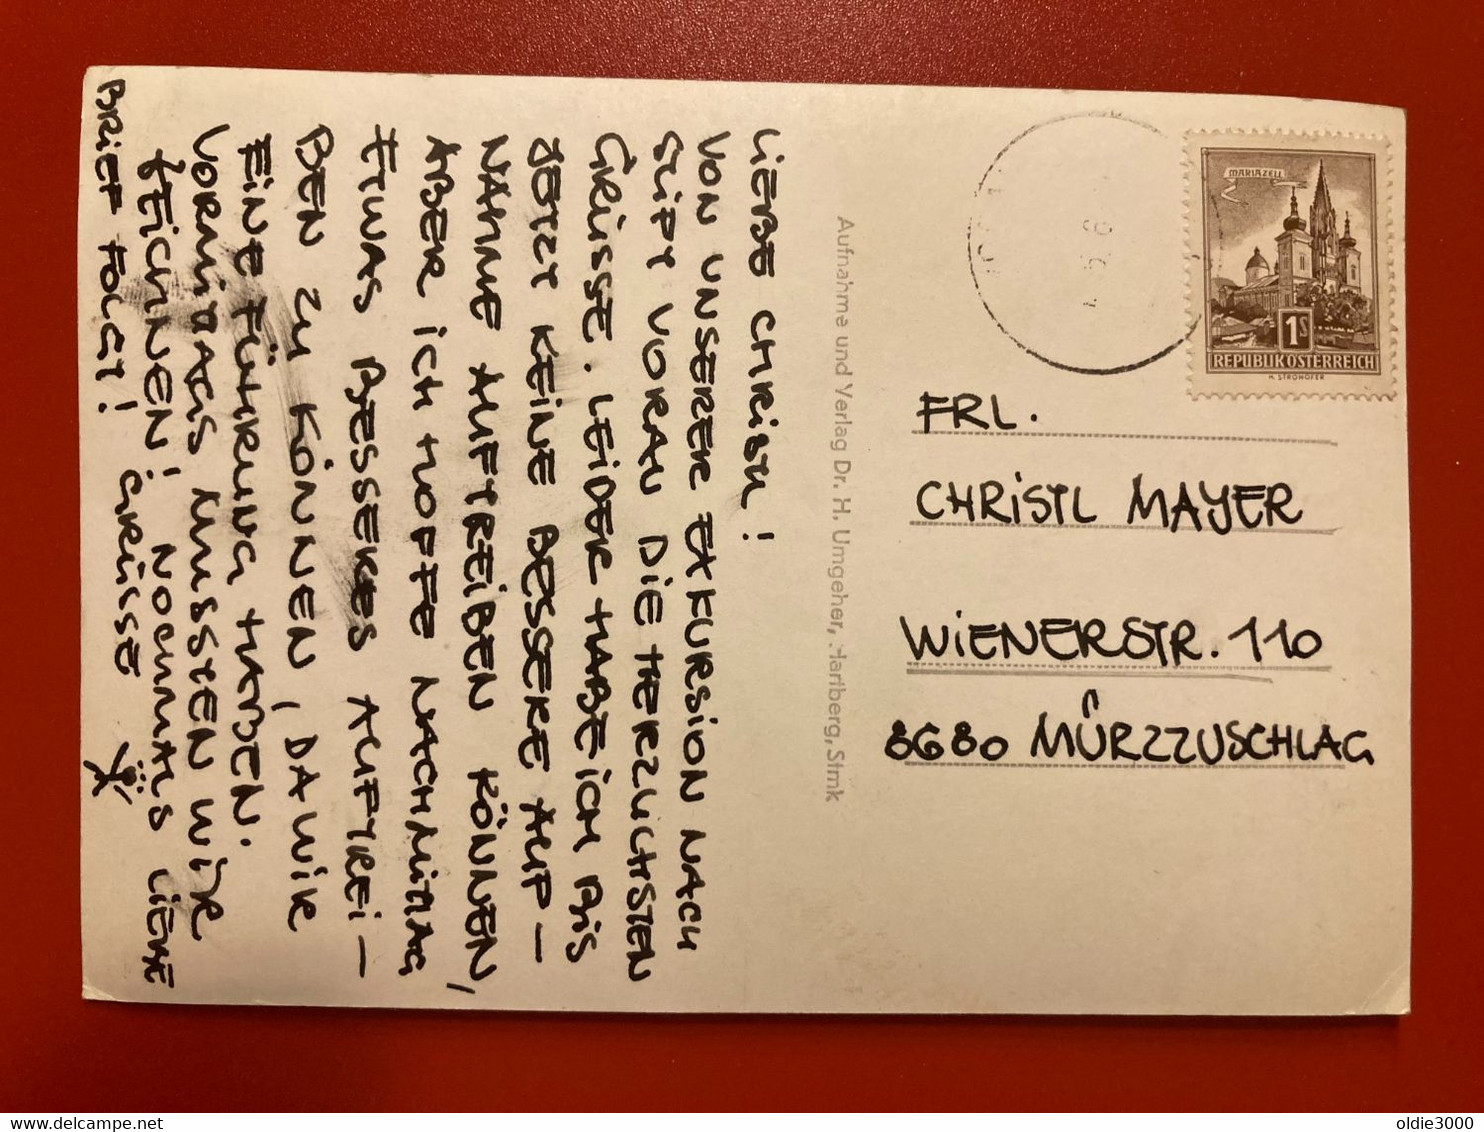 LIEBE CHRISTL!
VON UNSERER EXKURSION NACH
STIFT VORAU DIE HERZLICHSTEN
GRÜSSE. LEIDER HABE ICH BIS
JETZT KEINE BESSERE AUF-
NAHME AUFTREIBEN KÖNNEN,
ABER ICH HOFFE NACHMITTAG
ETWAS BESSERES AUFTREI-
BEN ZU KÖNNEN, DA WIR
EINE FÜHRUNG HABEN.
VORMITTAGS MUSSTEN WIR
ZEICHNEN! NOCHMALS LIEBE
GRÜSSE
BRIEF FOLGT!
Aufnahme und Verlag Dr. H. Umgeher, Hartberg, Stmk
MARIAZELL
1S
REPUBLIK ÖSTERREICH
H. STROHOFER
FRL.
CHRISTL MAYER
WIENERSTR. 110
8680 MÜRZZUSCHLAG
delcampe.net
oldie3000